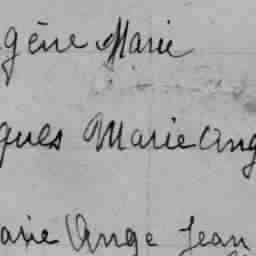 gène Marie
ques Marie Ang
arie Ange Jean